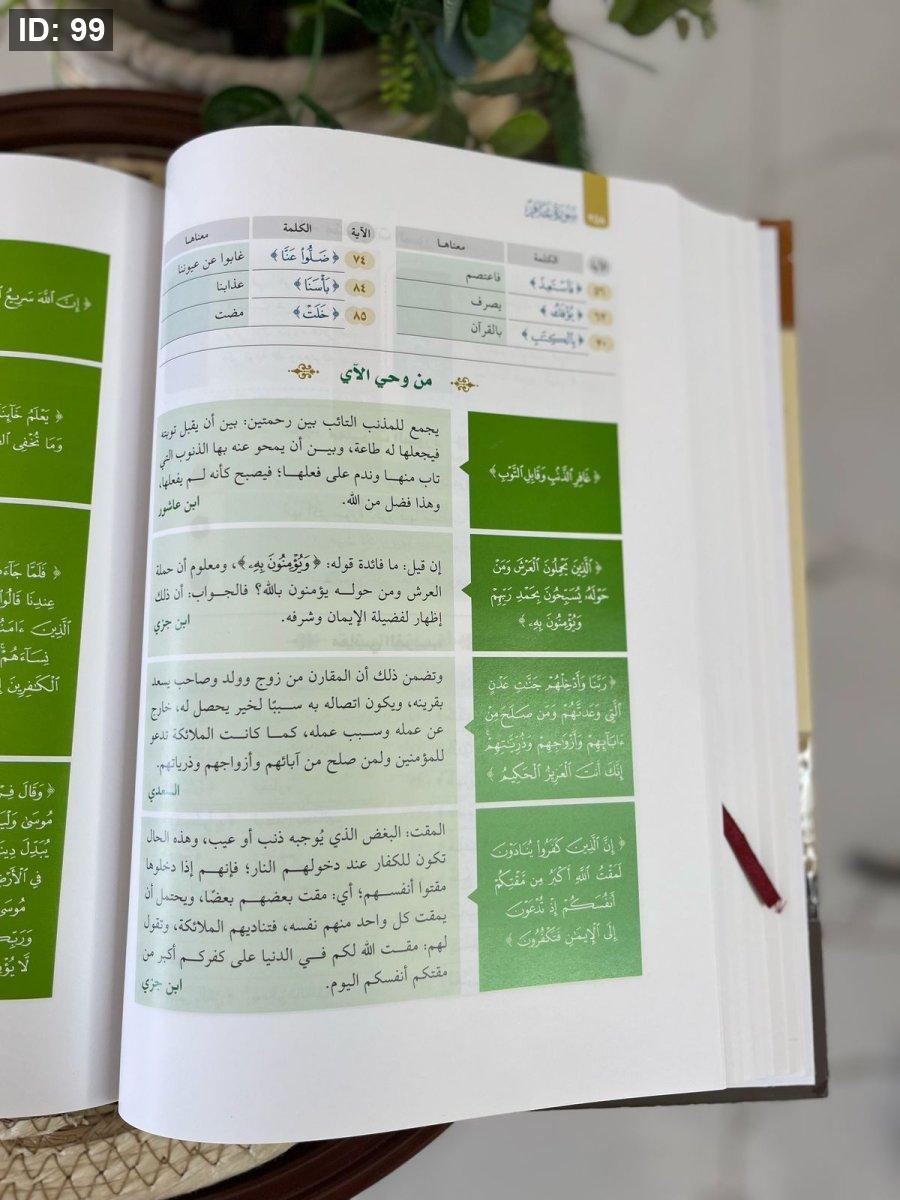 ID: 99
سورة غافر
الآية الكلمة معناها
٥٦ ﴿فَٱسْتَعِذْ﴾ فاعتصم
٦٣ ﴿يُؤْفَكُ﴾ يصرف
٧٠ ﴿بِٱلْكِتَٰبِ﴾ بالقرآن
الآية الكلمة معناها
٧٤ ﴿ضَلُّوا۟ عَنَّا﴾ غابوا عن عيوننا
٨٤ ﴿بَأْسَنَا﴾ عذابنا
٨٥ ﴿خَلَتْ﴾ مضت
من وحي الآي
﴿غَافِرِ ٱلذَّنۢبِ وَقَابِلِ ٱلتَّوْبِ﴾
يجمع للمذنب التائب بين رحمتين: بين أن يقبل توبته
فيجعلها له طاعة، وبين أن يمحو عنه بها الذنوب التي
تاب منها وندم على فعلها؛ فيصبح كأنه لم يفعلها،
وهذا فضل من الله.
ابن عاشور
﴿ٱلَّذِينَ يَحْمِلُونَ ٱلْعَرْشَ وَمَنْ
حَوْلَهُۥ يُسَبِّحُونَ بِحَمْدِ رَبِّهِمْ
وَيُؤْمِنُونَ بِهِۦ﴾
إن قيل: ما فائدة قوله: ﴿وَيُؤْمِنُونَ بِهِۦ﴾، ومعلوم أن حملة
العرش ومن حوله يؤمنون بالله؟ فالجواب: أن ذلك
إظهار لفضيلة الإيمان وشرفه.
ابن جزي
﴿رَبَّنَا وَأَدْخِلْهُمْ جَنَّٰتِ عَدْنٍ
ٱلَّتِى وَعَدتَّهُمْ وَمَن صَلَحَ مِنْ
ءَابَآئِهِمْ وَأَزْوَٰجِهِمْ وَذُرِّيَّٰتِهِمْ
إِنَّكَ أَنتَ ٱلْعَزِيزُ ٱلْحَكِيمُ﴾
وتضمن ذلك أن المقارن من زوج وولد وصاحب يسعد
بقرينه، ويكون اتصاله به سببًا لخير يحصل له، خارج
عن عمله وسبب عمله، كما كانت الملائكة تدعو
للمؤمنين ولمن صلح من آبائهم وأزواجهم وذرياتهم.
السعدي
﴿إِنَّ ٱلَّذِينَ كَفَرُوا۟ يُنَادَوْنَ
لَمَقْتُ ٱللَّهِ أَكْبَرُ مِن مَّقْتِكُمْ
أَنفُسَكُمْ إِذْ تُدْعَوْنَ
إِلَى ٱلْإِيمَٰنِ فَتَكْفُرُونَ﴾
المقت: البغض الذي يُوجبه ذنب أو عيب، وهذه الحال
تكون للكفار عند دخولهم النار؛ فإنهم إذا دخلوها
مقتوا أنفسهم؛ أي: مقت بعضهم بعضًا، ويحتمل أن
يمقت كل واحد منهم نفسه، فتناديهم الملائكة، وتقول
لهم: مقت الله لكم في الدنيا على كفركم أكبر من
مقتكم أنفسكم اليوم.
ابن جزي
﴿إِنَّ ٱللَّهَ سَرِيعُ
﴿يَعْلَمُ
وَمَا تُخْفِى
﴿فَلَمَّا
عِندِنَا قَالُوا۟
ٱلَّذِينَ
نِسَآءَهُمْ
ٱلْكَٰفِرِينَ
﴿وَقَالَ
مُوسَىٰ
يُبَدِّلَ
فِى
مُوسَىٰ
لَّا